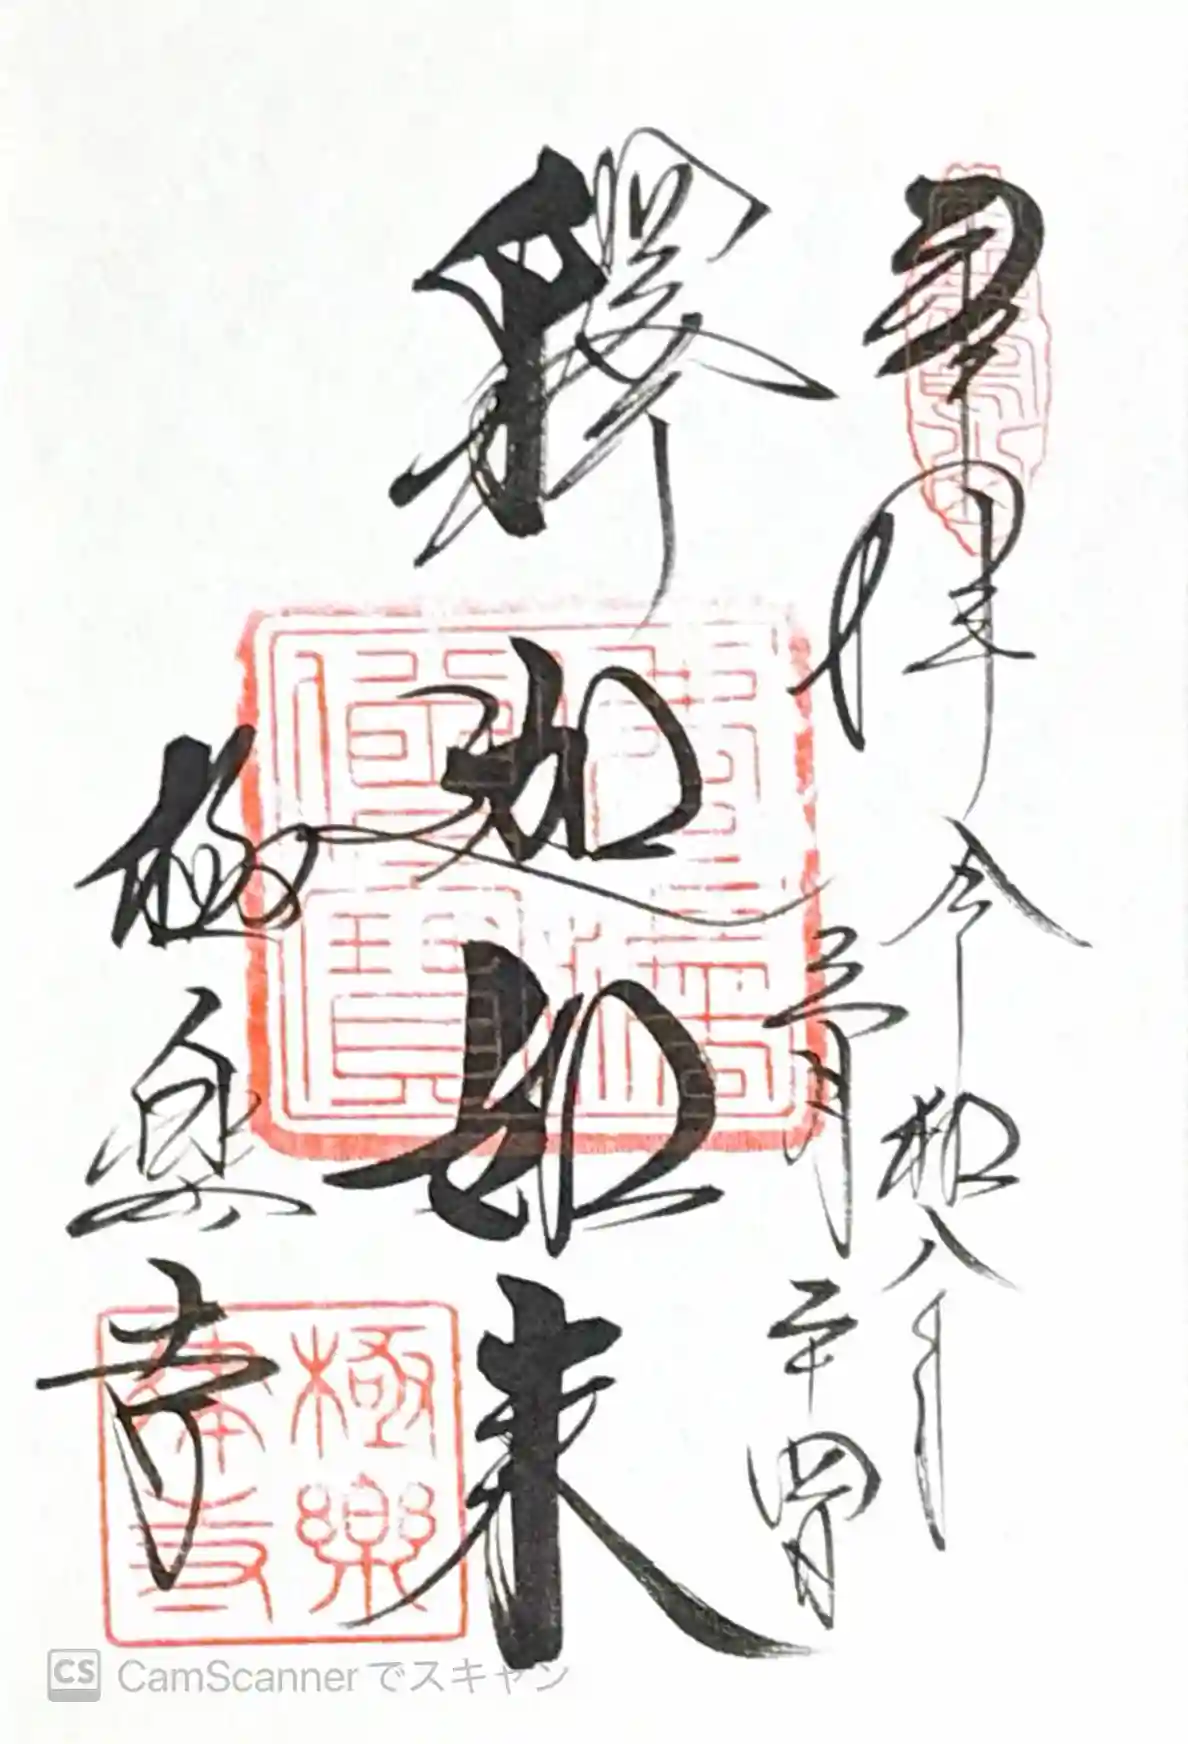 奉拝
令和八年
三月二十四日
釋迦如来
極楽寺
佛法僧寶
極樂
CamScanner でスキャン